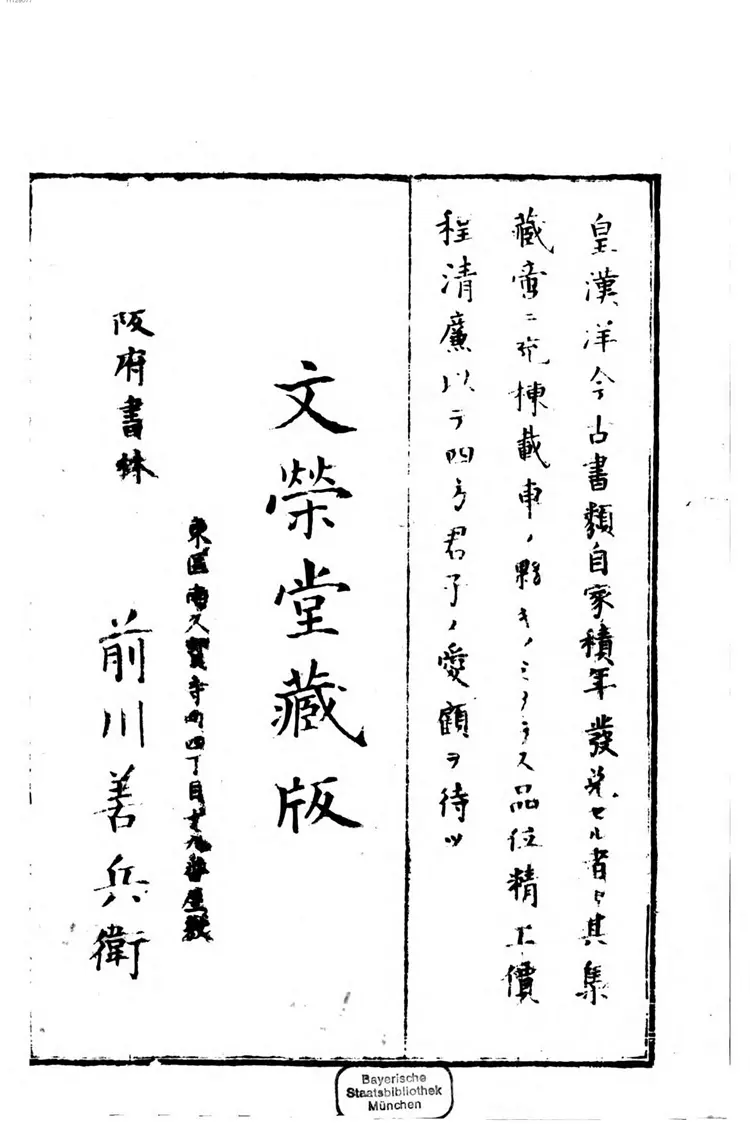 皇漢洋今古書類自家積年發兌セル者ヨ其集
藏啻ニ充棟載車ノ夥キノミナラス品位精工價
程清廉以テ四方君子ノ愛顧ヲ待ツ
文榮堂藏版
東區南久寳寺町四丁目 番屋敷
阪府書林
前川善兵衛
Bayerische
Staatsbibliothek
München